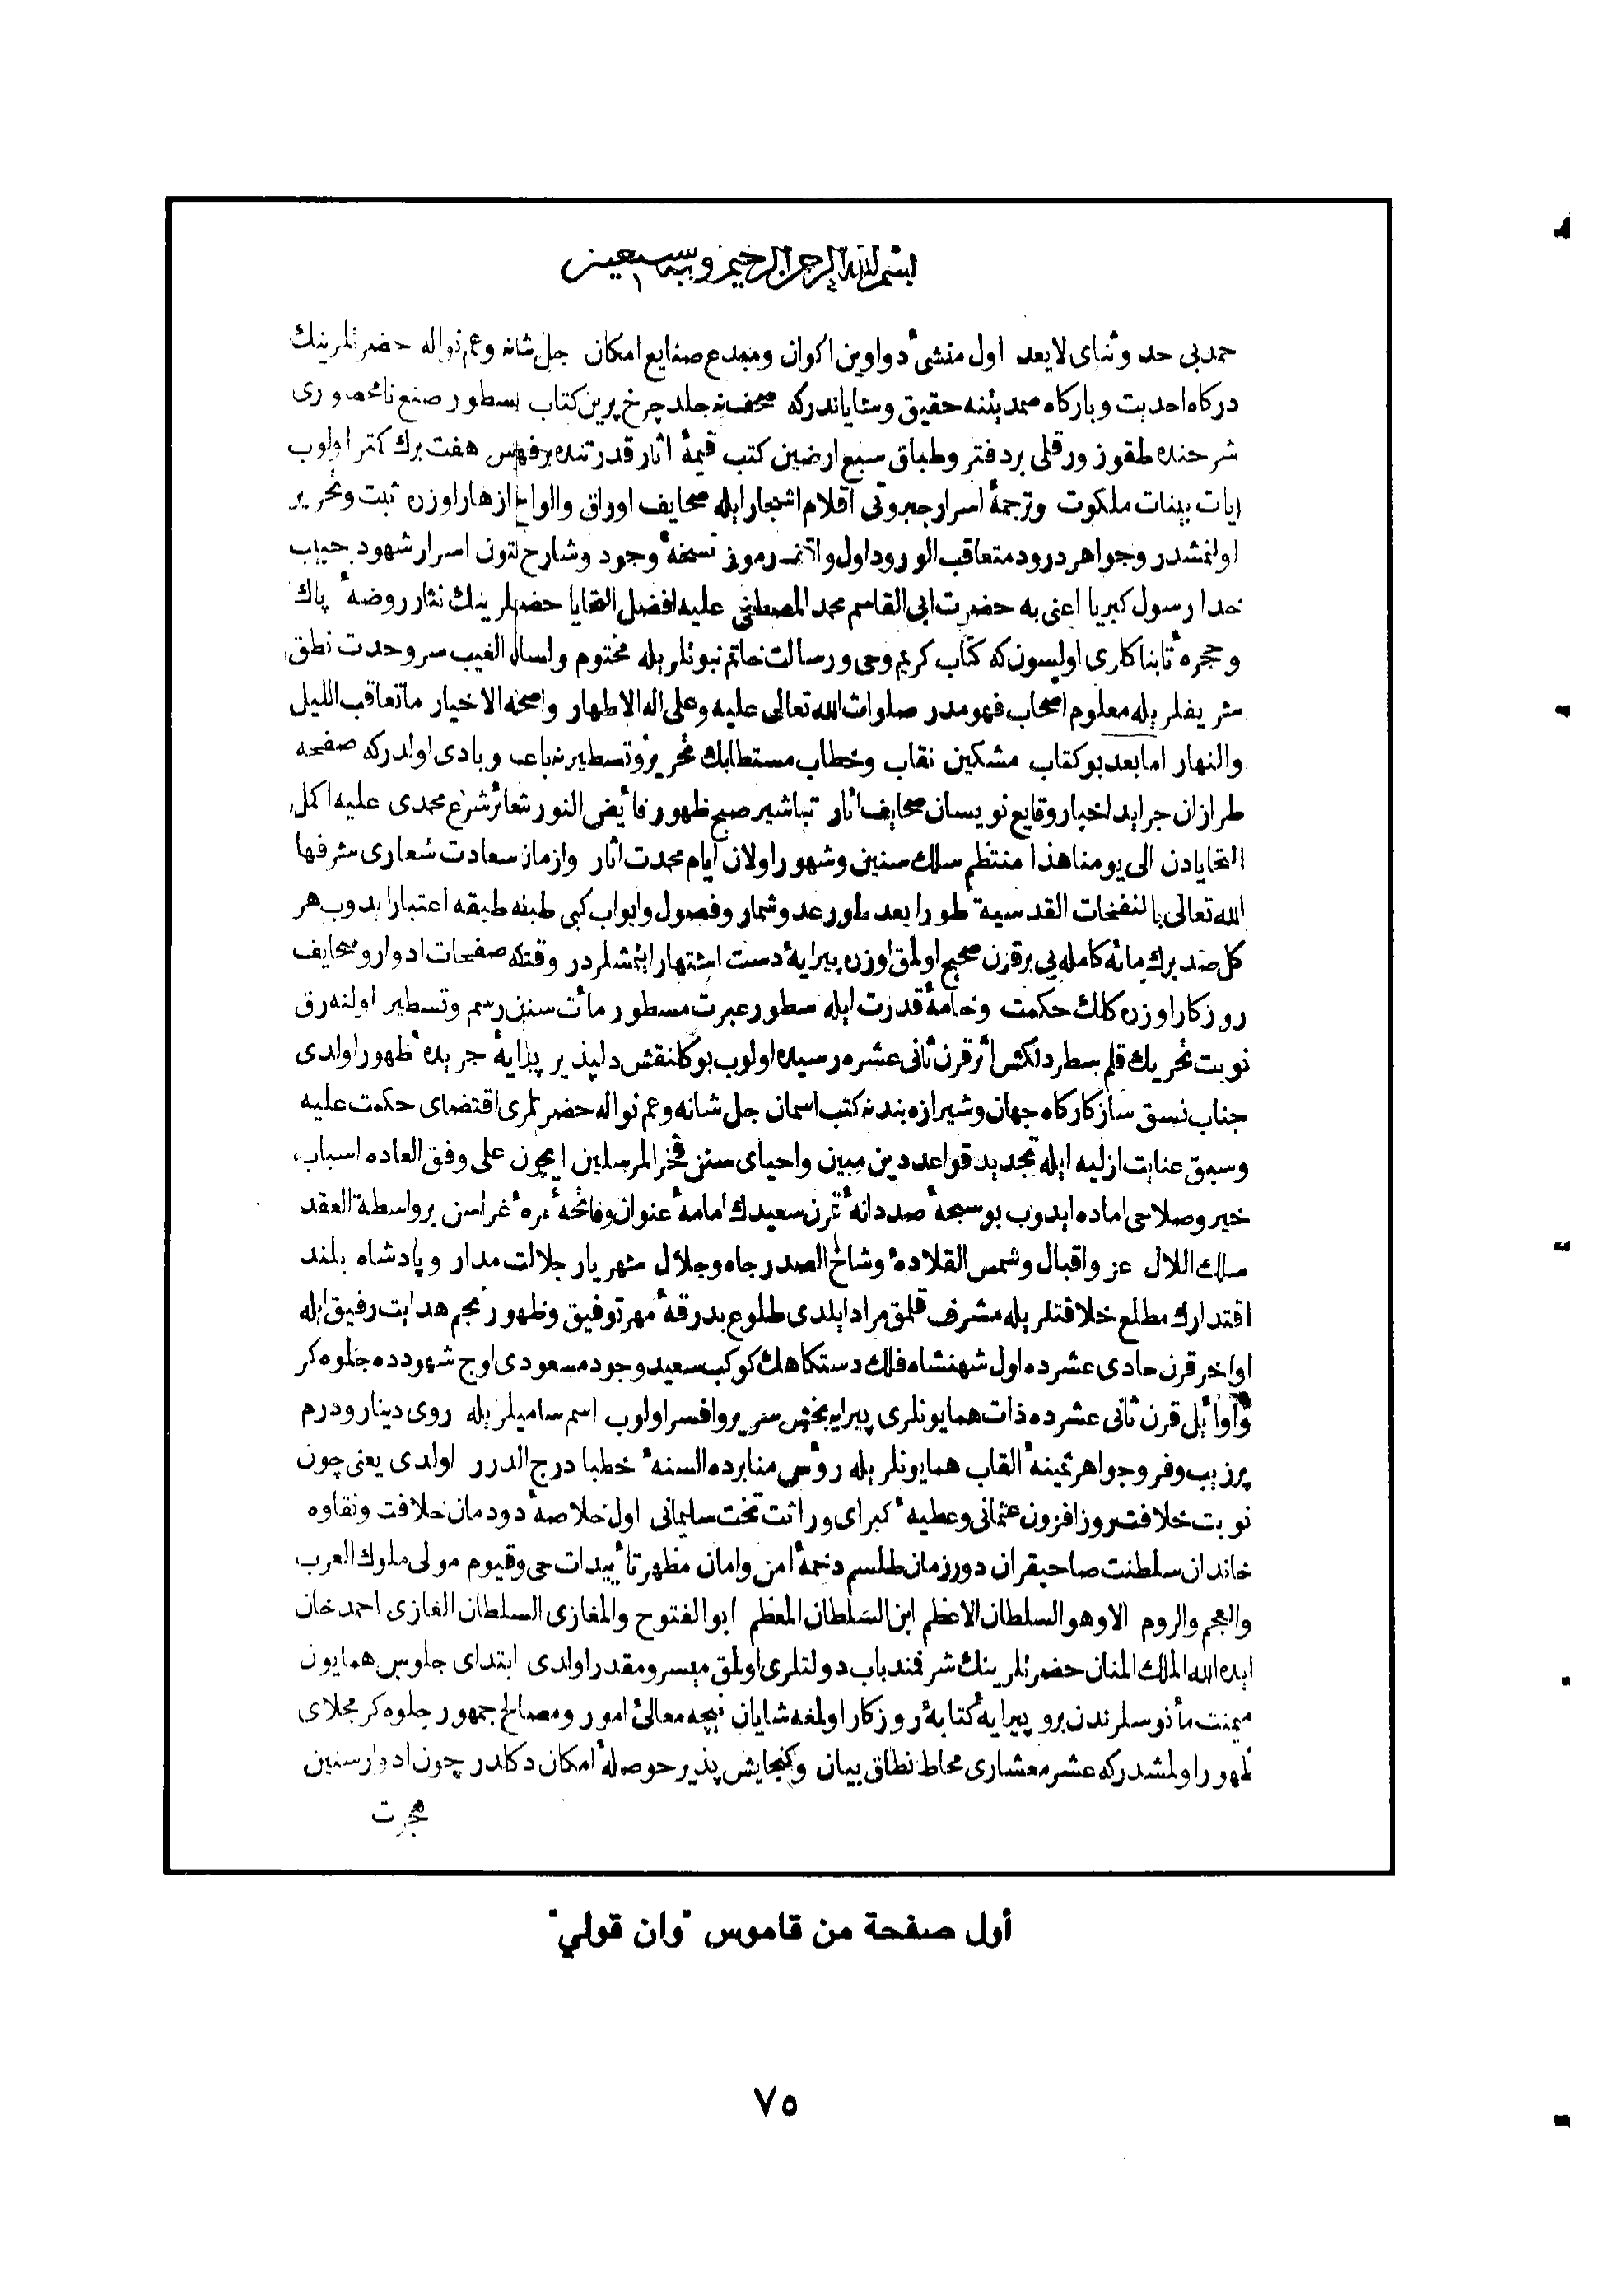 بسم الله الرحمن الرحيم وبه نستعين
حمد بى حد وثناى لا يعد اول منشئ دواوين اكوان ومبدع صنايع امكان جل شانه وعم نواله حضرتلرينك
دركاه احديت وباركاه صمديتنه حقيق وشاياندركه صحف نه جلد چرخ برين كتاب مسطور صنع نامحصورى
شرحنده طقوز ورقلى بر دفتر وطباق سبع ارضين كتب قيمهٔ اثار قدرتنده بر فهرس هفت برك كمتر اولوب
ايات بينات ملكوت وترجمهٔ اسرار جبروتى اقلام اشجار ايله صحايف اوراق والواح ازهار اوزره ثبت وتحرير
اولنمشدر وجواهر درود متعاقب الورود اول واقف رموز نسخهٔ وجود وشارح متون اسرار شهود حبيب
خدا رسول كبريا اعنى به حضرت ابى القاسم محمد المصطفى عليه افضل التحايا حضرتلرينك نثار روضهٔ پاك
وحجرهٔ تابناكارى اولسون كه كتاب كريم وحى ورسالت خاتم نبوتلريله مختوم ولسان الغيب سر وحدت نطق
شريفلريله معلوم اصحاب فهومدر صلوات الله تعالى عليه وعلى اله الاطهار واصحابه الاخيار ما تعاقب الليل
والنهار اما بعد بو كتاب مشكين نقاب وخطاب مستطابك تحرير وتسطيرنه باعث وبادى اولدركه صفحه
طرازان جرايد اخبار وقايع نويسان صحايف اثار تباشير صبح ظهور فائض النور شعائر شرع محمدى عليه اكمل
التحايادن الى يومنا هذا منتظم سلك سنين وشهور اولان ايام محمدت اثار وازمان سعادت شعارى شرفها
الله تعالى بالنفحات القدسية طورا بعد طور عد وشمار وفصول وابواب كبى طبقه طبقه اعتبار ايدوب هر
كل صد برك مائهٔ كامله يى بر قرن صحيح اولمق اوزره پيرايهٔ دست اشتهار ايتمشلردر وقتاكه صفحات ادوار وصحايف
روزكار اوزره كلك حكمت وخامهٔ قدرت ايله سطور عبرت مسطور مأت سنين رسم وتسطير اولنه رق
نوبت تحريك قلم بسطر دلكش اثر قرن ثانى عشره رسيده اولوب بو كلنقش دلپذير پيرايهٔ جريدهٔ ظهور اولدى
جناب نسق ساز كاركاه جهان وشيرازه بند نه كتب اسمان جل شانه وعم نواله حضرتلرى اقتضاى حكمت عليه
وسبق عنايت ازليه ايله تجديد قواعد دين مبين واحياى سنن فخر المرسلين ايچون على وفق العاده اسباب
خير وصلاحى اماده ايدوب بو سبحهٔ صد دانهٔ قرن سعيدك امامهٔ عنوان وفاتحهٔ غرهٔ غراسن بر واسطة العقد
سلك اللال عز واقبال وشمس القلادهٔ وشاح الصدر جاه وجلال شهريار جلالت مدار وپادشاه بلند
اقتدارك مطلع خلافتلريله مشرف قلمق مراد ايلدى طلوع بدرقهٔ مهر توفيق وظهور نجم هدايت رفيق ايله
اواخر قرن حادى عشرده اول شهنشاه فلك دستكاهك كوكب سعيد وجود مسعودى اوج شهودده جلوه كر
واوائل قرن ثانى عشرده ذات همايونلرى پيرايه بخش سرير وافسر اولوب اسم ساميلريله روى دينار ودرم
پرزيب وفر وجواهر ثمينهٔ القاب همايونلريله رؤس منابرده السنهٔ خطبا درج الدرر اولدى يعنى چون
نوبت خلافت روزافزون عثمانى وعطيهٔ كبراى وراثت تخت سليمانى اول خلاصهٔ دودمان خلافت ونقاوه
خاندان سلطنت صاحبقران دور زمان طلسم دخمهٔ امن وامان مظهر تأييدات حى وقيوم مولى ملوك العرب
والعجم والروم الا وهو السلطان الاعظم ابن السلطان المعظم ابو الفتوح والمغازى السلطان الغازى احمد خان
ايده الله الملك المنان حضرتلرينك شرفمند باب دولتلرى اولمق ميسر ومقدر اولدى ابتداى جلوس همايون
ميمنت مأنوسلرندن برو پيرايهٔ كتابهٔ روزكار اولمغه شايان نيچه معالئ امور ومصالح جمهور جلوه كر مجلاى
ظهور اولمشدركه عشر معشارى محاط نطاق بيان وكنجايش پذير حوصلهٔ امكان دكلدر چون ادوار سنين
هجرت
أول صفحة من قاموس "وان قولي"
٧٥